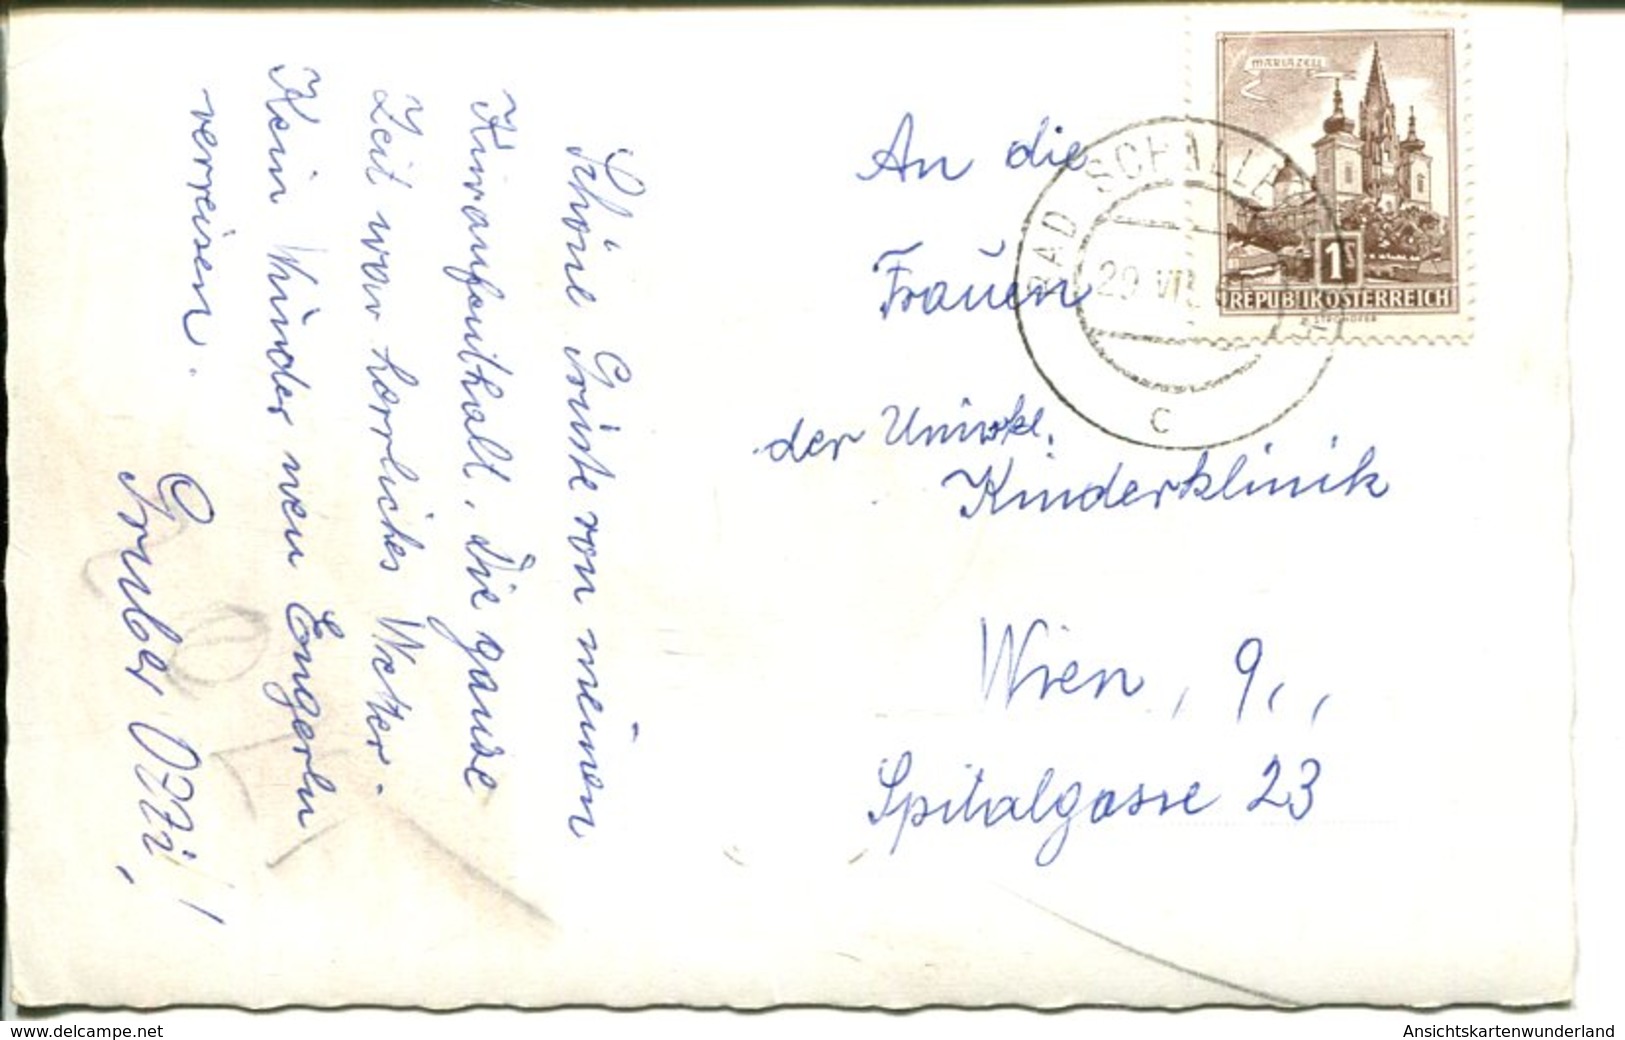 Schöne Grüsse von meinen
Kuraufenthalt. Die ganze
Zeit war herrliches Wetter.
Kein Wunder wen Engerln
verreisen.
Gruber Otti!
An die
Frauen
der Univkl.
Kinderklinik
Wien, 9.,
Spitalgasse 23
MARIAZELL
1S
REPUBLIK ÖSTERREICH
BAD SCHALLERBACH
29. VII.
c
www.delcampe.net
Ansichtskartenwunderland